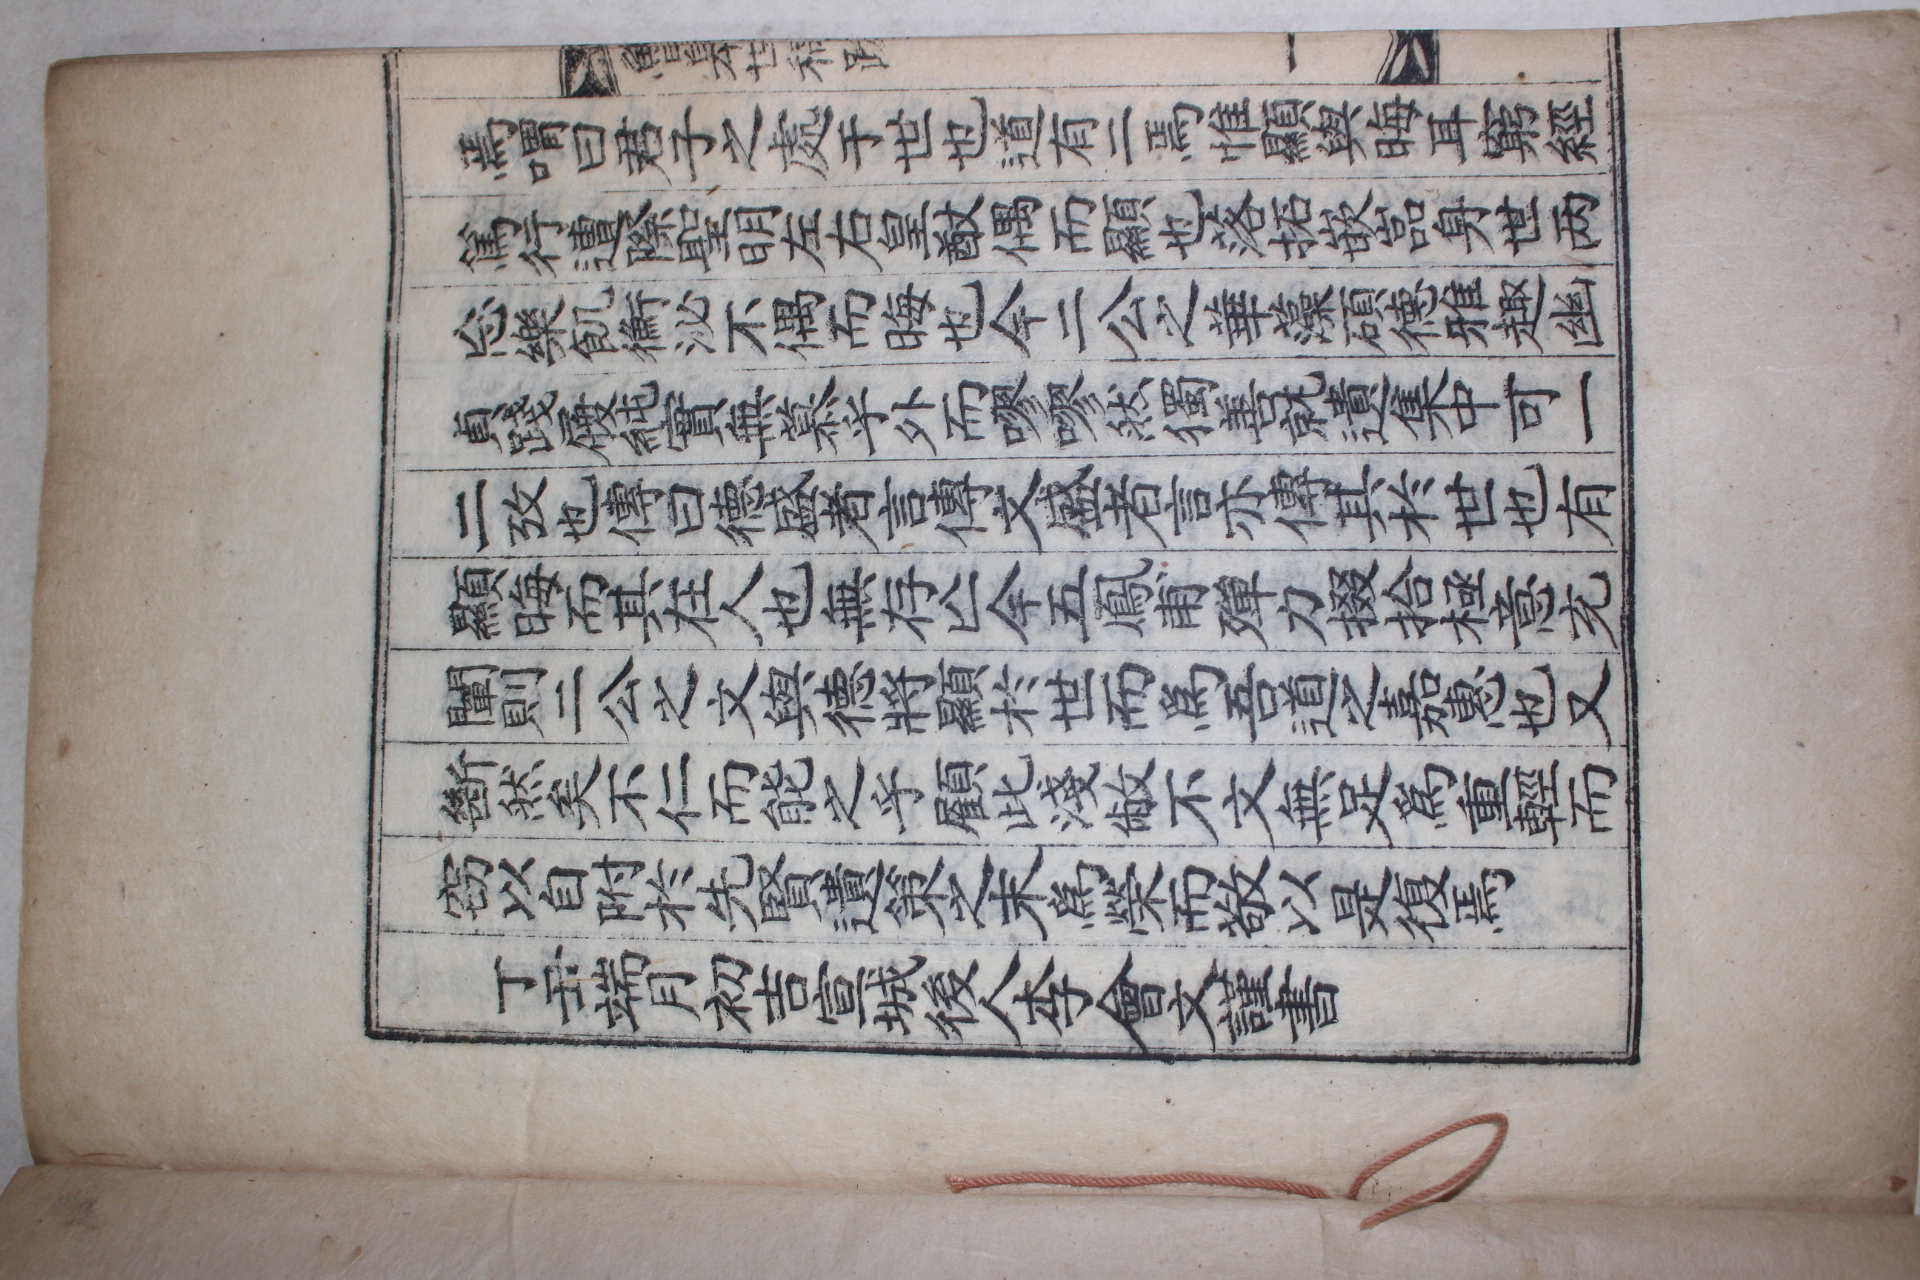 皐世稿跋 一
焉喟曰君子之處于世也道有二焉惟顯與晦耳窮經
篤行遭際聖明左右皇猷偶而顯也落拓嵌嵓身世两
忘樂飢衡泌不偶而晦也今二公之華藻碩德雅趣幽
貞踐履純實無慕乎外而嘐嘐然獨善就遺集中可一
二攷也傳曰德盛者言傳文盛者言亦傳其於世也有
顯晦而其在人也無存亾今五鳳甫殫力掇拾極意充
闡則二公之文與德將顯於世而爲吾道之嘉惠也又
斷然矣不仁而能之乎顧此淺敝不文無足爲重輕而
窃以自附於先賢遺策之末爲榮而敬以是復焉
丁丑端月初吉宣城後人李會文謹書